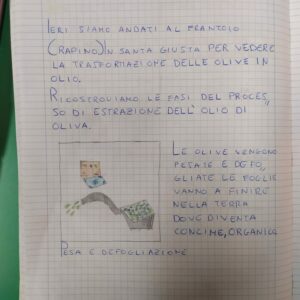 IERI SIAMO ANDATI AL FRANTOIO
(RAPINO) IN SANTA GIUSTA PER VEDERE
LA TRASFORMAZIONE DELLE OLIVE IN
OLIO.
RICOSTRUIAMO LE FASI DEL PROCES„
SO DI ESTRAZIONE DELL'OLIO DI
OLIVA.
LE OLIVE VENGONO
PESATE E DEFO„
GLIATE LE FOGLIE
VANNO A FINIRE
NELLA TERRA
DOVE DIVENTA
CONCIME, ORGANICO
PESA E DEFOGLIAZIONE